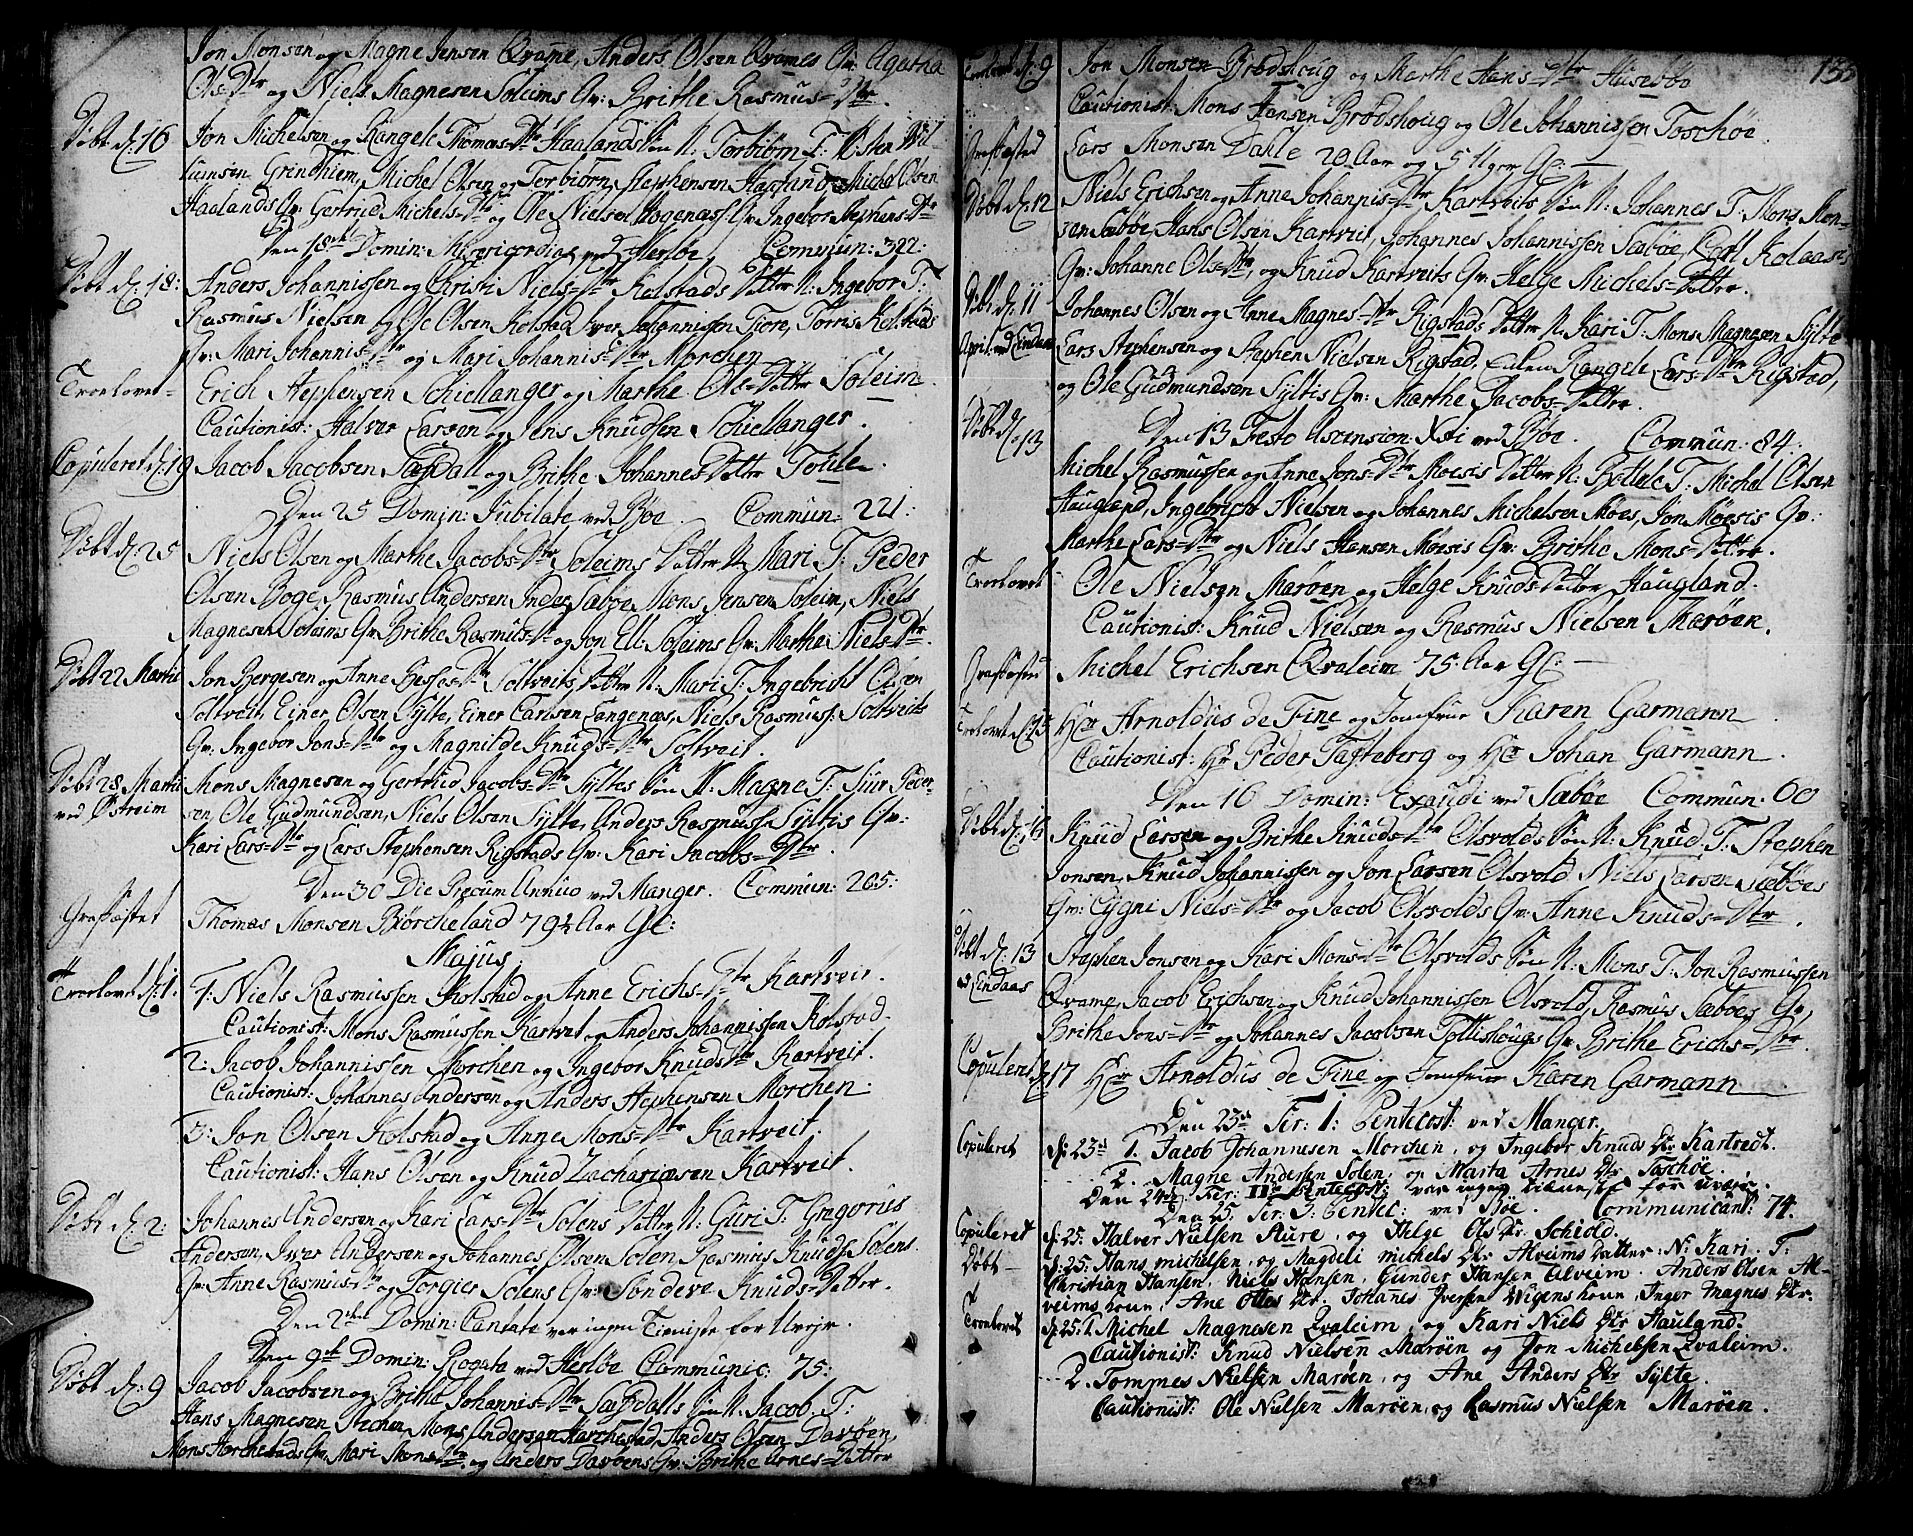 Jon Monsen og Magne Jensen Qvame, Anders Olsen Qvames Qv: Agatha
Ols=Dtr og Niels Magnesen Soleims Qv: Brithe Rasmus=Dtr.
Døbt d: 16 Jon Michelsen og Rangele Thomas=Dtr Haalands Søn N. Torbiørn T:
Grindhiem, Michel Olsen og Torbiørn Stephensen Haaland, Michel Olsen
Haalands Qv: Gertrud Michels=Dtr og Ole Nielsen Qv: Ingebor Stephens=Dtr
Den 18de Domin: Misericordias ved Herløe Commun: 322:
Døbt d: 18: Anders Johannissen og Christi Niels=Dtr Kolstads Datter N: Ingebor T:
Rasmus Nielsen og Ole Olsen Kolstad, Iver Johannissen Fiore, Torris Kolstads
Qv: Mari Johannis=Dtr og Mari Johannis=Dtr Morchen
Troelovet Erich Stephensen Schiellanger og Marthe Ols=Datter Soleim.
Cautionist: Halver Larsen og Jens Knudsen Schiellanger.
Copuleret d: 19 Jacob Jacobsen og Brithe Johannes Datter
Den 25 Domin: Jubilate ved Bøe. Commun: 221:
Døbt d: 25 Niels Olsen og Marthe Jacobs=Dtr Soleims Datter N. Mari T: Peder
Olsen Boge, Rasmus Andersen Inder Sæbøe, Mons Jensen Soleim, Niels
Magnesen Soleims Qv: Brithe Rasmus=Dtr og Jon Ell: Soleims Qv: Marthe Niels=Dtr.
Døbt 22 Martii Jon Bergesen og Anne Dtr Toltveits Datter N. Mari T: Ingebricht Olsen
Toltveit, Einer Olsen Sylte, Einer Carlsen Langenæs, Niels Rasmus: Toltveits
Qv: Ingebor Jons=Dtr og Magnilde Knuds=Dtr Toltveit.
Døbt 28 Martii Mons Magnesen og Gertrud Jacobs=Dtr Syltes Søn N. Magne T: Siur Peder-
ved Østreim sen, Ole Gudmundsen, Niels Olsen Sylte, Anders Rasmussen Syltes Qv:
Kari Lars=Dtr og Lars Stephensen Rigstads Qv: Kari Jacobs=Dtr.
Den 30 Die Precum Annuo ved Manger. Commun: 205:
Græsfæstet Thomas Monsen Biørcheland 79½ Aar Gl:
Majus.
Troelovet d: 1. 1: Niels Rasmussen Kolstad og Anne Erichs=Dtr Kartveit.
Cautionist: Mons Rasmussen Kartvet og Anders Johannissen Kolstad.
2: Jacob Johannissen Morchen og Ingebor Knuds Dtr Kartveit.
Cautionist: Johannes Andersen og Anders Stephensen Morchen:
3: Jon Olsen Kolstad og Anne Mons=Dtr Kartveit.
Cautionist: Hans Olsen og Knud Zachariæsen Kartveit.
Døbt d: 2: Johannes Andersen og Kari Lars=Dtr Solens Datter N: Guri T: Gregorius
Andersen, Iver Andersen og Johannes Olsen Solen, Rasmus Knuds: Solens
Qv: Anne Rasmus=Dtr og Torgier Solens Qv: Søndeve Knuds=Datter.
Den 2den Domin: Cantate var ingen Tieniste for Uvejr.
Den 9de Domin: Rogate ved Herløe Communic: 75:
Døbt d: 9 Jacob Jacobsen og Brithe Johannis=Dtr Søn N. Jacob T:
Hans Magnesen, Mons Andersen Horchestad, Anders Olsen Davøen,
Mons Horchestads Qv: Mari Mons=Dtr og Anders Davøens Qv: Brithe Arnes=Datter
133
Troelovet d: 9 Jon Monsen Brødshoug og Marthe Hans=Dtr Husebøe
Cautionist: Mons Hansen Brødshoug og Ole Johannissen Toschøe.
Græsfæsted Lars Monsen Dahle 20 Aar og 5 Uger Gl:
Døbt d: 12 Niels Erichsen og Anne Johannis=Dtr Kartveits Søn N: Johannes T: Mons Mon=
sen Sæbøe, Hans Olsen Kartveit, Johannes Johannissen Sæbøe, Carl Kolaases
Qv: Johanne Ols=Dtr, og Knud Kartveits Qv: Helge Michels=Datter.
Døbt d: 11 Johannes Olsen og Anne Magnes=Dtr Rigstads Datter N. Kari T: Mons Magnesen Sylte
April ved Lindaas Lars Stephensen og Stephen Nielsen Rigstad, Enken Rangele Lars=Dtr Rigstad,
og Ole Gudmundsen Syltes Qv: Marthe Jacobs=Datter.
Den 13 Festo Ascension: Xsti ved Bøe. Commun: 84:
Døbt d: 13 Michel Rasmussen og Anne Jons=Dtr Moesis Datter N: Bottele T: Michel Olsen
Haugland, Ingebricht Nielsen og Johannes Michelsen Moes, Jon Moesis Qv:
Marthe Lars=Dtr og Niels Hansen Moesis Qv: Brithe Mons=Datter.
Troelovet Ole Nielsen Marøen og Helge Knuds=Datter Haugland.
Cautionist: Knud Nielsen og Rasmus Nielsen Marøen.
Græsfæsted Michel Erichsen Qvaleim 75: Aar Gl:
Troelovet d: 15 Hr Arnoldus de Fine og Jomfrue Karen Garmann.
Cautionist: Hr Peder Tagteberg og Hr Johan Garmann.
Den 16 Domin: Exaudi ved Sæbøe Commun: 60
Døbt d: 16 Knud Larsen og Brithe Knuds=Dtr Olsvolds Søn N: Knud. T: Stephen
Jonsen, Knud Johannissen og Jon Larsen Olsvold, Niels Larsen Sæbøes
Qv: Cygni Niels=Dtr og Jacob Olsvolds Qv: Anne Knuds=Dtr
Døbt d: 13 Stephen Jonsen og Kari Mons=Dtr Olsvolds Søn N. Mons T: Jon Rasmussen
ved Lindaas Qvame, Jacob Erichsen og Knud Johannissen Olsvold, Rasmus Sæbøes Qv,
Brithe Jons=Dtr og Johannes Jacobsen Tollishougs Qv: Brithe Erichs=Dtr
Copuleret d: 17 Hr Arnoldus de Fine og Jomfrue Karen Garmann
Den 23de Fer: 1: Pentecost: ved Manger.
Copuleret d: 23de 1. Jacob Johannesen Morchen, og Ingebor Knuds Dtr Kartvedt.
2. Magne Andersen Solen, og Marta Arnes Dtr Taschøe.
Den 24de Fer: II Pentecost: var ingen tieneste for uveir.
Den 25. Fer: 3: Pentec: ved Bøe. Communicant: 74.
Copuleret d: 25: Halver Nielsen Sture, og Helge Ols Dtr Schiold.
Døbt d: 25: Hans michelsen, og Magdeli michels Dtr Alveims Datter: N: Kari. T:
Christian Hansen, Niels Hansen, Gunder Hansen Alveim. Anders Olsen Al-
veims kone, Ane Ottes Dtr. Johanes Iversen kone, Inger Magnes Dtr.
Troelovet d: 25. 1. Michel Magnesen Qvaleim, og Kari Niels Dtr Hauland.
Cautionist: Knud Nielsen Marøen og Jon Michelsen Qvaleim.
2. Tommes Nielsen Marøen, og Ane Anders Dtr Sylte.
Cautionist: Ole Nielsen Marøen, og Rasmus Nielsen Marøen.